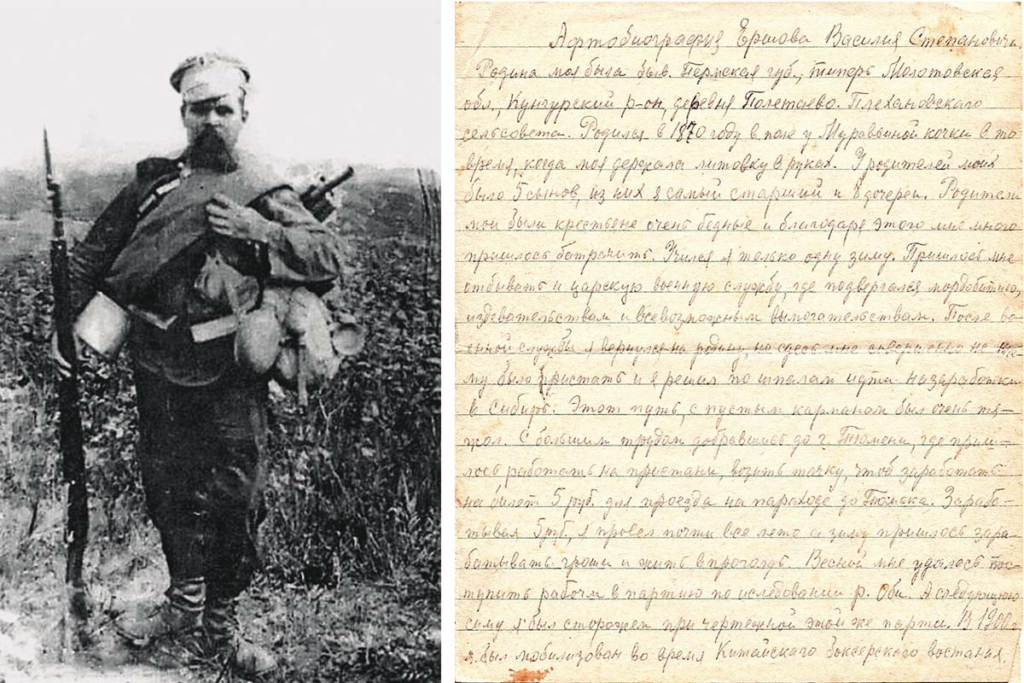 Афтобиография Ершова Василия Степановича.
Родина моя была быв. Пермская губ., теперь Молотовская
обл., Кунгурский р-он, деревня Полетаево. Плехановского
сельсовета. Родился в 1870 году в поле у Муравьиной кочки в то
время, когда моя держала литовку в руках. У родителей моих
было 5 сынов, из них я самый старший и дочерей. Родители
мои были крестьене очень бедные и благодаря этого мне много
пришлось батрачить. Учился я только одну зиму. Пришлось мне
отбывать и царскую военную службу, где подвергался мордобитию,
издевательствам и всевозможным вымогательствам. После во-
енной службы я вернулся на родину, но здесь мне совершенно не к че-
му было пристать и я решил по шпалам идти на заработки
в Сибирь. Этот путь, с пустым карманом был очень тя-
жол. С большим трудом добравшись до г. Тюмени, где приш-
лось работать на пристани, возить тачку, чтоб заработать
на билет 5 руб. для проезда на параходе до Томска. Зарабо-
тывая 5 руб, я провел почти все лето а зиму пришлось зара-
батывать гроши и жить впроголодь. Весной мне удалось пос-
тупить рабочим в партию по иследованию р. Оби. А следующую
зиму я был сторожем при чертежной этой же парти. В 1900 г
я был мобилизован во время Китайского боксерского востания.